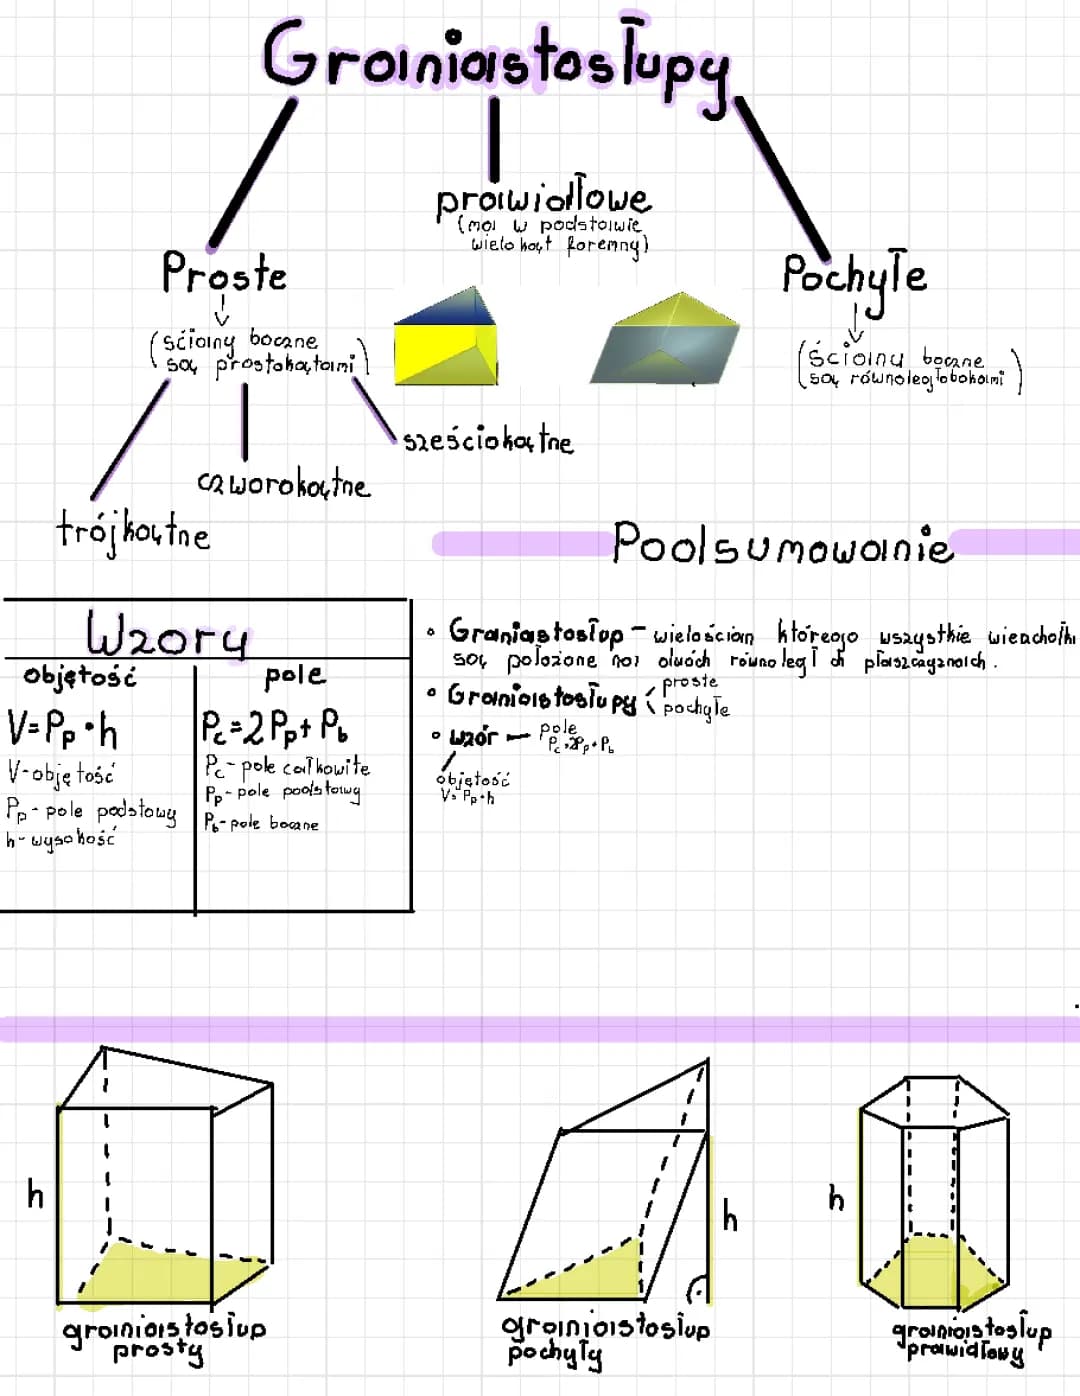 Graniastosłupy
prawidłowe
(ma w podstawie
wielokąt foremny)
Proste
(ściany boczne
są prostokątami)
Pochyłe
(Ściany boczne
są równoległobokami)
sześciokątne
czworokątne
trójkątne
Podsumowanie
Wzory
objętość
V=Pp·h
V-objętość
Pp- pole podstawy
h-wysokość
pole
Pc=2Pp+Pb
Pc- pole całkowite
Pp- pole podstawy
Pb- pole boczne
• Graniastosłup - wielościan którego wszystkie wierzchołki
są położone na dwóch równoległych płaszczyznach.
• Graniastosłupy < proste
pochyłe
• wzór — pole
Pc=2Pp+Pb
objętość
V=Pp·h
h
graniastosłup
prosty
h
graniastosłup
pochyły
h
graniastosłup
prawidłowy